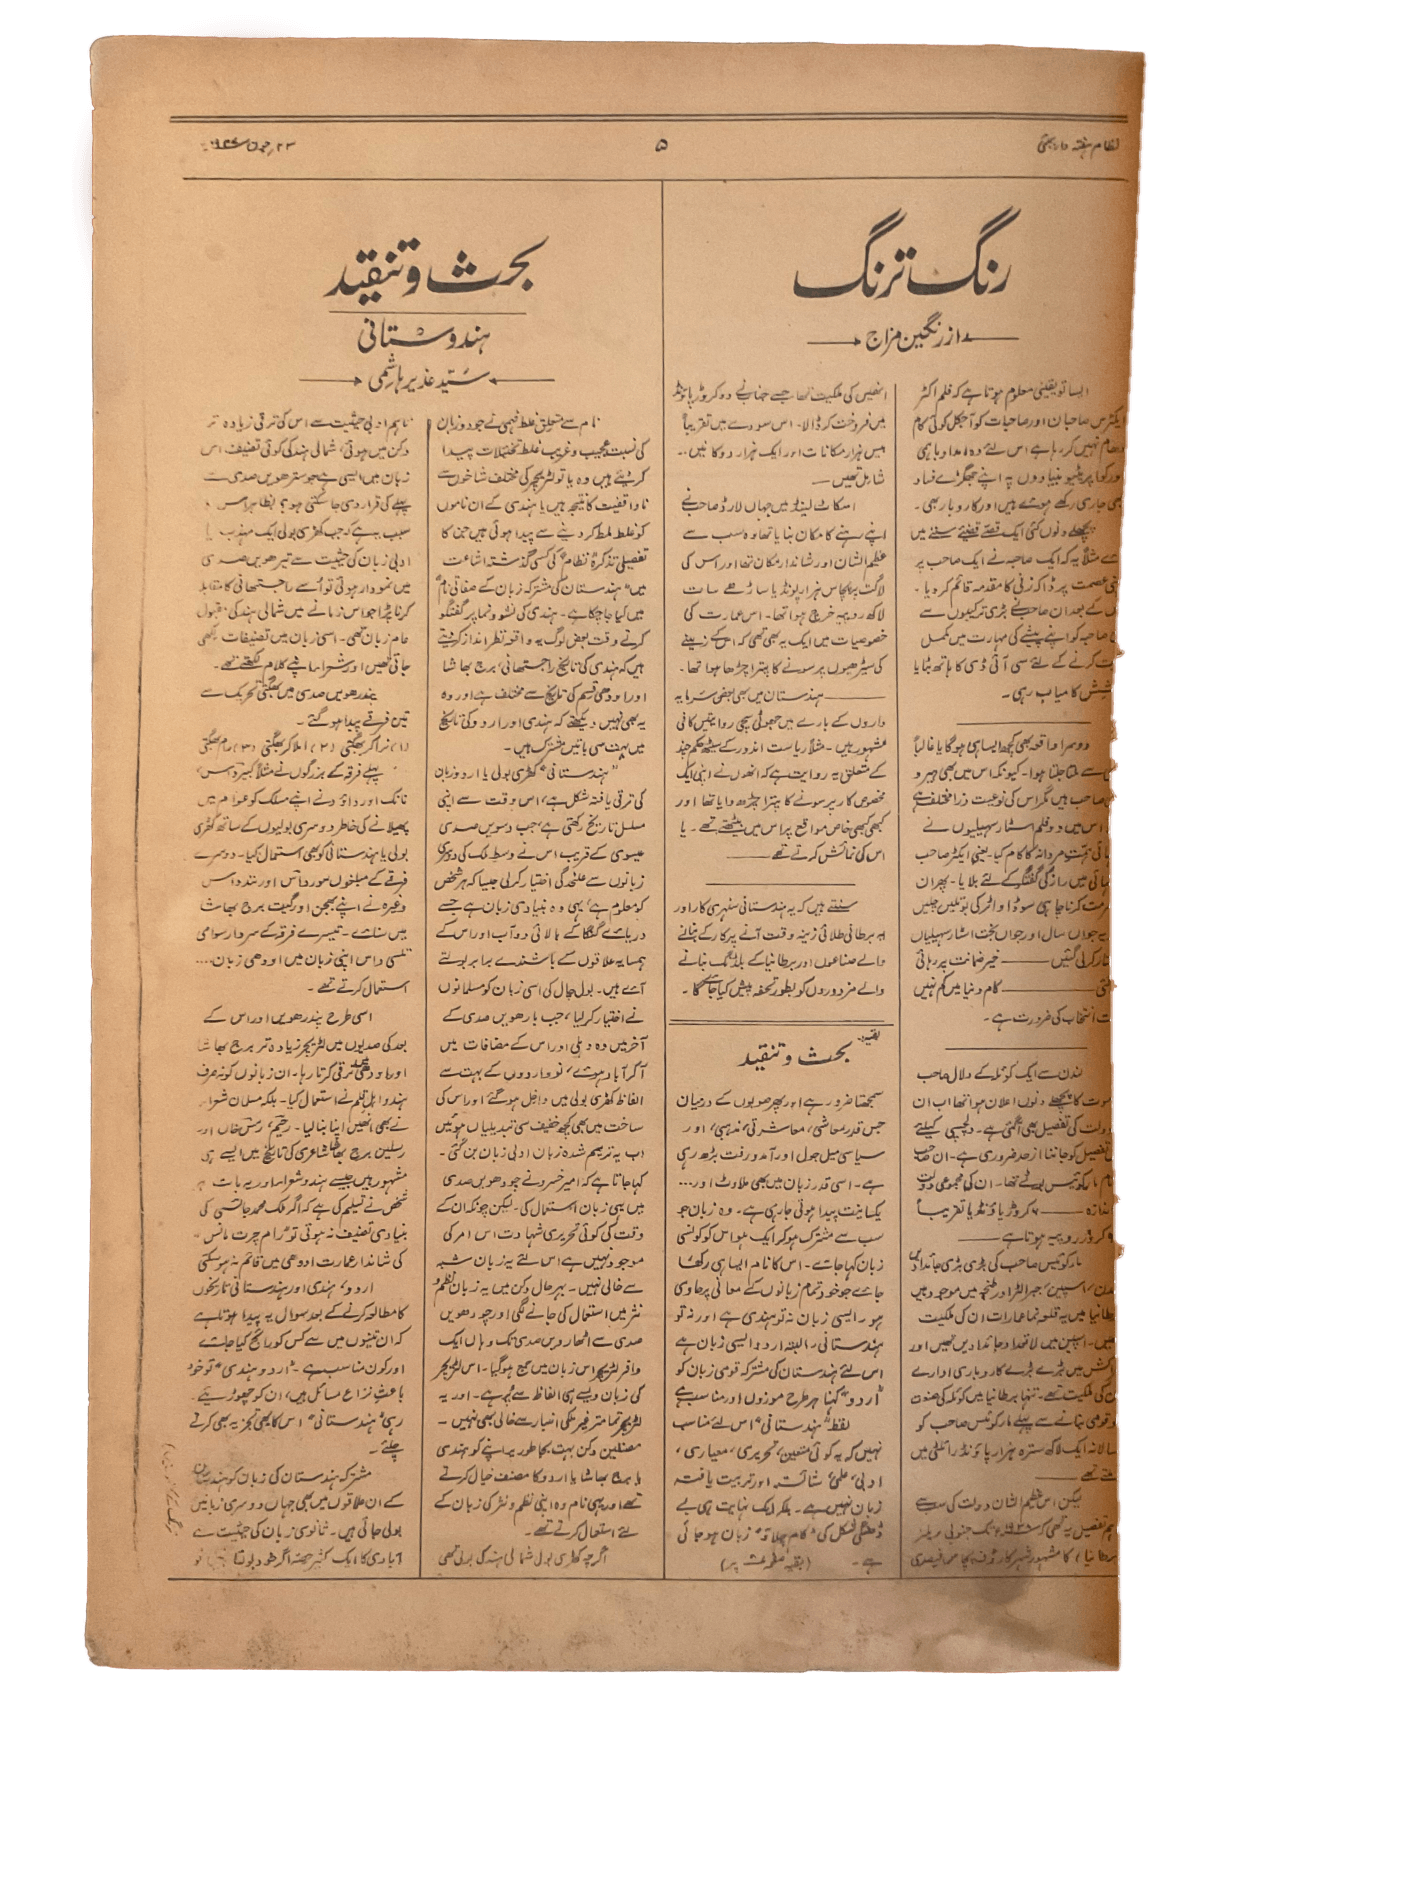 نظام ہفتہ وار بمبئی
۵
رنگ ترنگ
از رنگین مزاج
ایسا تو یقینی معلوم ہوتا ہے کہ فلم اکٹر
صاحبان اور صاحبات کو آجکل کوئی کام
نہیں کر رہا ہے اس لئے وہ امداد باہمی
بنیادوں پہ اپنے جھگڑے فساد
بھی جاری رکھے ہوئے ہیں اور کاروبار بھی۔
پچھلے دنوں کئی ایک قصّے قضیئے سننے میں
مثلاً یہ کہ ایک صاحبہ نے ایک صاحب پر
عصمت پر ڈاکہ زنی کا مقدمہ قائم کر دیا۔
کے بعد ان صاحب نے بڑی ترکیبوں سے
صاحبہ کو اپنے پیشے کی مہارت میں مکمل
کرنے کے لئے سی آئی ڈی کا ہاتھ بٹایا
کامیاب رہی۔
دوسرا واقعہ بھی کچھ ایسا ہی ہوگا یا غالباً
سے ملتا جلتا ہوا۔ کیونکہ اس میں بھی ہیرو
صاحب ہیں مگر اس کی نوعیت ذرا مختلف ہے
اس میں دو فلم اسٹار سہیلیوں نے
مردانہ کا کام کیا۔ یعنی ایکٹر صاحب
میں راز کی گفتگو کے لئے بلایا۔ پھر ان
کرنا چاہی سوڈا واٹر کی بوتلیں چلیں
جواں سال اور جواں بخت اسٹار سہیلیاں
کر لی گئیں ——— خیر ضمانت پر رہائی
——— کام دنیا میں کم نہیں
انتخاب کی ضرورت ہے۔
لندن سے ایک کوئلہ کے دلال صاحب
موت کا پچھلے دنوں اعلان ہوا تھا اب ان
دولت کی تفصیل بھی آگئی ہے۔ دلچسپی کیلئے
تفصیل کو جاننا از حد ضروری ہے۔ ان صاحب
نام مارکوئیس بوٹے تھا۔ ان کی مجموعی دولت
——— کروڑ پاؤنڈ یا تقریباً
کروڑ روپیہ ہوتا ہے ———
مارکوئیس صاحب کی بڑی بڑی جائدادیں
اسپین، جبرالٹر اور طنجہ میں موجود ہیں
میں یہ قلعہ نما عمارات ان کی ملکیت
ہیں۔ اسپین میں لاتعداد جائدادیں تھیں اور
میں بڑے بڑے کاروباری ادارے
کی ملکیت تھے۔ تنہا برطانیا میں کوئلہ کی صنعت
قومی بنانے سے پہلے مارکوئس صاحب کو
سالانہ ایک لاکھ سترہ ہزار پاؤنڈ رائلٹی میں
تھے ———
لیکن اس عظیم الشان دولت کی سب سے
تفصیل یہ تھی کہ ۱۹۳۸ء تک جنوبی ویلز
کا مشہور شہر کارڈف پچاس فیصدی
انھیں کی ملکیت تھا جسے جناب نے دو کروڑ پاؤنڈ
میں فروخت کر ڈالا۔ اس سودے میں تقریباً
بیس ہزار مکانات اور ایک ہزار دوکانیں..
شامل تھیں —
اسکاٹ لینڈ میں جہاں لارڈ صاحب نے
اپنے رہنے کا مکان بنایا تھا وہ سب سے
عظیم الشان اور شاندار مکان تھا اور اس کی
لاگت پچاس ہزار پونڈ یا ساڑھے سات
لاکھ روپیہ خرچ ہوا تھا۔ اس عمارت کی
خصوصیات میں ایک یہ بھی تھی کہ اس کے زینے
کی سیڑھیوں پر سونے کا پترا چڑھا ہوا تھا۔
——— ہندستان میں بھی بعض سرمایہ
داروں کے بارے میں جھوٹی سچی روایتیں کافی
مشہور ہیں۔ مثلاً ریاست اندور کے سیٹھ حکم چند
کے متعلق یہ روایت ہے کہ انھوں نے اپنی ایک
مخصوص کار پر سونے کا پترا چڑھوایا تھا اور
کبھی کبھی خاص مواقع پر اس میں بیٹھتے تھے۔ یا
اس کی نمائش کرتے تھے ———
سنتے ہیں کہ یہ ہندستانی سنہری کار اور
برطانی طلائی زینہ وقت آنے پر کار کے بنانے
والے صناعوں اور برطانیا کے بلڈنگ بنانے
والے مزدوروں کو بطور تحفہ پیش کیا جائے گا۔
بقیہ:-
بحث و تنقید
سمجھتا ضرور ہے اور پھر صوبوں کے درمیان
جس قدر معاشی، معاشرتی، مذہبی، اور
سیاسی میل جول اور آمد و رفت بڑھ رہی
ہے۔ اسی قدر زبان میں بھی ملاوٹ اور...
یکسانیت پیدا ہوتی جا رہی ہے۔ وہ زبان جو
سب سے مشترک ہو کر ایک ہو اس کو کونسی
زبان کہا جائے۔ اس کا نام ایسا ہی رکھا
جائے جو خود تمام زبانوں کے معانی پر حاوی
ہو۔ ایسی زبان نہ تو ہندی ہے اور نہ تو
ہندستانی، البتہ اردو ایسی زبان ہے
اس لئے ہندستان کی مشترکہ قومی زبان کو
اُردو کہنا ہر طرح موزوں اور مناسب ہے
لفظ "ہندستانی" اس لئے مناسب
نہیں کہ یہ کوئی متعین، تحریری، معیاری،
ادبی، علمی شائستہ اور تربیت یافتہ
زبان نہیں ہے۔ بلکہ ایک نہایت ہی بے
ڈھنگی شکل کی "کام چلاؤ" زبان ہو جاتی
ہے۔ (بقیہ صفحہ پر)
بحث و تنقید
ہندوستانی
سیّد غدیر ہاشمی
نام سے متعلق غلط فہمی نے جو دو زبان
کی نسبت عجیب و غریب غلط تخیلات پیدا
کر دیئے ہیں وہ یا تو لٹریچر کی مختلف شاخوں سے
ناواقفیت کا نتیجہ ہیں یا ہندی کے ان ناموں
کو غلط ملط کر دینے سے پیدا ہوئی ہیں جن کا
تفصیلی تذکرہ "نظام" کی کسی گذشتہ اشاعت
میں "ہندستان کی مشترکہ زبان کے صفاتی نام"
میں کیا جا چکا ہے۔ ہندی کی نشو و نما پر گفتگو
کرتے وقت بعض لوگ یہ واقعہ نظر انداز کر دیتے
ہیں کہ ہندی کی تاریخ راجستھانی، برج بھاشا
اور اودھی قسم کی تاریخ سے مختلف ہے اور وہ
یہ بھی نہیں دیکھتے کہ ہندی اور اردو کی تاریخ
میں بہت سی باتیں مشترک ہیں۔
"ہندستانی" کھڑی بولی یا اردو زبان
کی ترقی یافتہ شکل ہے، اس وقت سے اپنی
مسلسل تاریخ رکھتی ہے، جب دسویں صدی
عیسوی کے قریب اس نے وسطِ ملک کی دوسری
زبانوں سے علٰحدگی اختیار کر لی جیسا کہ ہر شخص
کو معلوم ہے، یہی وہ بنیادی زبان ہے جسے
دریائے گنگا کے بالائی دوآب اور اس کے
ہمسایہ علاقوں کے باشندے برابر بولتے
آئے ہیں۔ بول چال کی اسی زبان کو مسلمانوں
نے اختیار کر لیا، جب بارھویں صدی کے
آخر میں وہ دہلی اور اس کے مضافات میں
آ کر آباد ہوئے، نوواردوں کے بہت سے
الفاظ کھڑی بولی میں داخل ہو گئے اور اس کی
ساخت میں بھی کچھ خفیف سی تبدیلیاں ہوئیں
اب یہ ترمیم شدہ زبان ادبی زبان بن گئی۔
کہا جاتا ہے کہ امیر خسرو نے چودھویں صدی
میں یہی زبان استعمال کی۔ لیکن چونکہ ان کے
وقت کی کوئی تحریری شہادت اس امر کی
موجود نہیں ہے اس لئے یہ زبان شبہ
سے خالی نہیں۔ بہرحال دکن میں یہ زبان نظم و
نثر میں استعمال کی جانے لگی اور چودھویں
صدی سے اٹھارویں صدی تک وہاں ایک
وافر لٹریچر اس زبان میں جمع ہو گیا۔ اس لٹریچر
کی زبان ویسے ہی الفاظ سے پُر ہے۔ اور یہ
لٹریچر تمام تر غیر ملکی اثبار سے خالی بھی نہیں۔
مصنفین دکن بہت بجا طور پر اپنے کو ہندی
یا برج بھاشا یا اردو کا مصنف خیال کرتے
تھے اور یہی نام وہ اپنی نظم و نثر کی زبان کے
لئے استعمال کرتے تھے۔
اگرچہ کھڑی بولی شمالی ہند کی بولی تھی
تاہم ادبی حیثیت سے اس کی ترقی زیادہ تر
دکن میں ہوئی، شمالی ہند کی کوئی تصنیف اس
زبان میں ایسی ہے جو سترھویں صدی سے
پہلے کی قرار دی جا سکتی ہو؟ بظاہر اس کا
سبب یہ ہے کہ جب کھڑی بولی ایک مہذب یا
ادبی زبان کی حیثیت سے تیرھویں صدی
میں نمودار ہوئی تو اُسے راجستھانی کا مقابلہ
کرنا پڑا جو اس زمانے میں شمالی ہند کی مقبول
عام زبان تھی۔ اسی زبان میں تصنیفات لکھی
جاتی تھیں اور شعرا اپنے کلام لکھتے تھے۔
پندرھویں صدی میں بھگتی تحریک سے
تین فرقے پیدا ہو گئے۔
(۱) نراکر بھگتی (۲) املاکر بھگتی (۳) رام بھگتی
پہلے فرقہ کے بزرگوں نے مثلاً کبیر داس،
نانک اور داؤد نے اپنے مسلک کو عوام میں
پھیلانے کی خاطر دوسری بولیوں کے ساتھ کھڑی
بولی یا ہندستانی کو بھی استعمال کیا۔ دوسرے
فرقے کے مبلغوں سورداس اور نندداس
وغیرہ نے اپنے بھجن اور گیت برج بھاشا
میں سنائے۔ تیسرے فرقہ کے سردار سوامی
تلسی داس اپنی زبان میں اودھی زبان....
استعمال کرتے تھے۔
اسی طرح پندرھویں اور اس کے
بعد کی صدیوں میں لٹریچر زیادہ تر برج بھاشا
اور اودھی میں ترقی کرتا رہا۔ ان زبانوں کو نہ صرف
ہندو اہل قلم نے استعمال کیا۔ بلکہ مسلمان شعراء
نے بھی انھیں اپنا بنا لیا۔ رحیم، رس خاں اور
رسلین برج بھاشا شاعری کی تاریخ میں ایسے ہی
مشہور ہیں جیسے ہندو شعرا اور یہ بات ہر
شخص نے تسلیم کی ہے کہ اگر ملک محمد جائسی کی
بنیادی تصنیف نہ ہوتی تو "رام چرت مانس"
کی شاندار عمارت اودھی میں قائم نہ ہو سکتی
اردو، ہندی اور ہندستانی تاریخوں
کا مطالعہ کرنے کے بعد سوال یہ پیدا ہوتا ہے
کہ ان تینوں میں سے کس کو رائج کیا جائے
اور کون مناسب ہے۔ "اردو ہندی" تو خود
باعثِ نزاع مسائل ہیں، ان کو چھوڑیئے۔
رہی "ہندستانی" اس کا بھی تجزیہ بھی کرتے
چلئے۔
مشترکہ ہندستان کی زبان کو ہندستان
کے ان علاقوں میں بھی جہاں دوسری زبانیں
بولی جاتی ہیں۔ ثانوی زبان کی حیثیت سے
آبادی کا ایک کثیر حصہ اگر خود بولتا نہیں تو